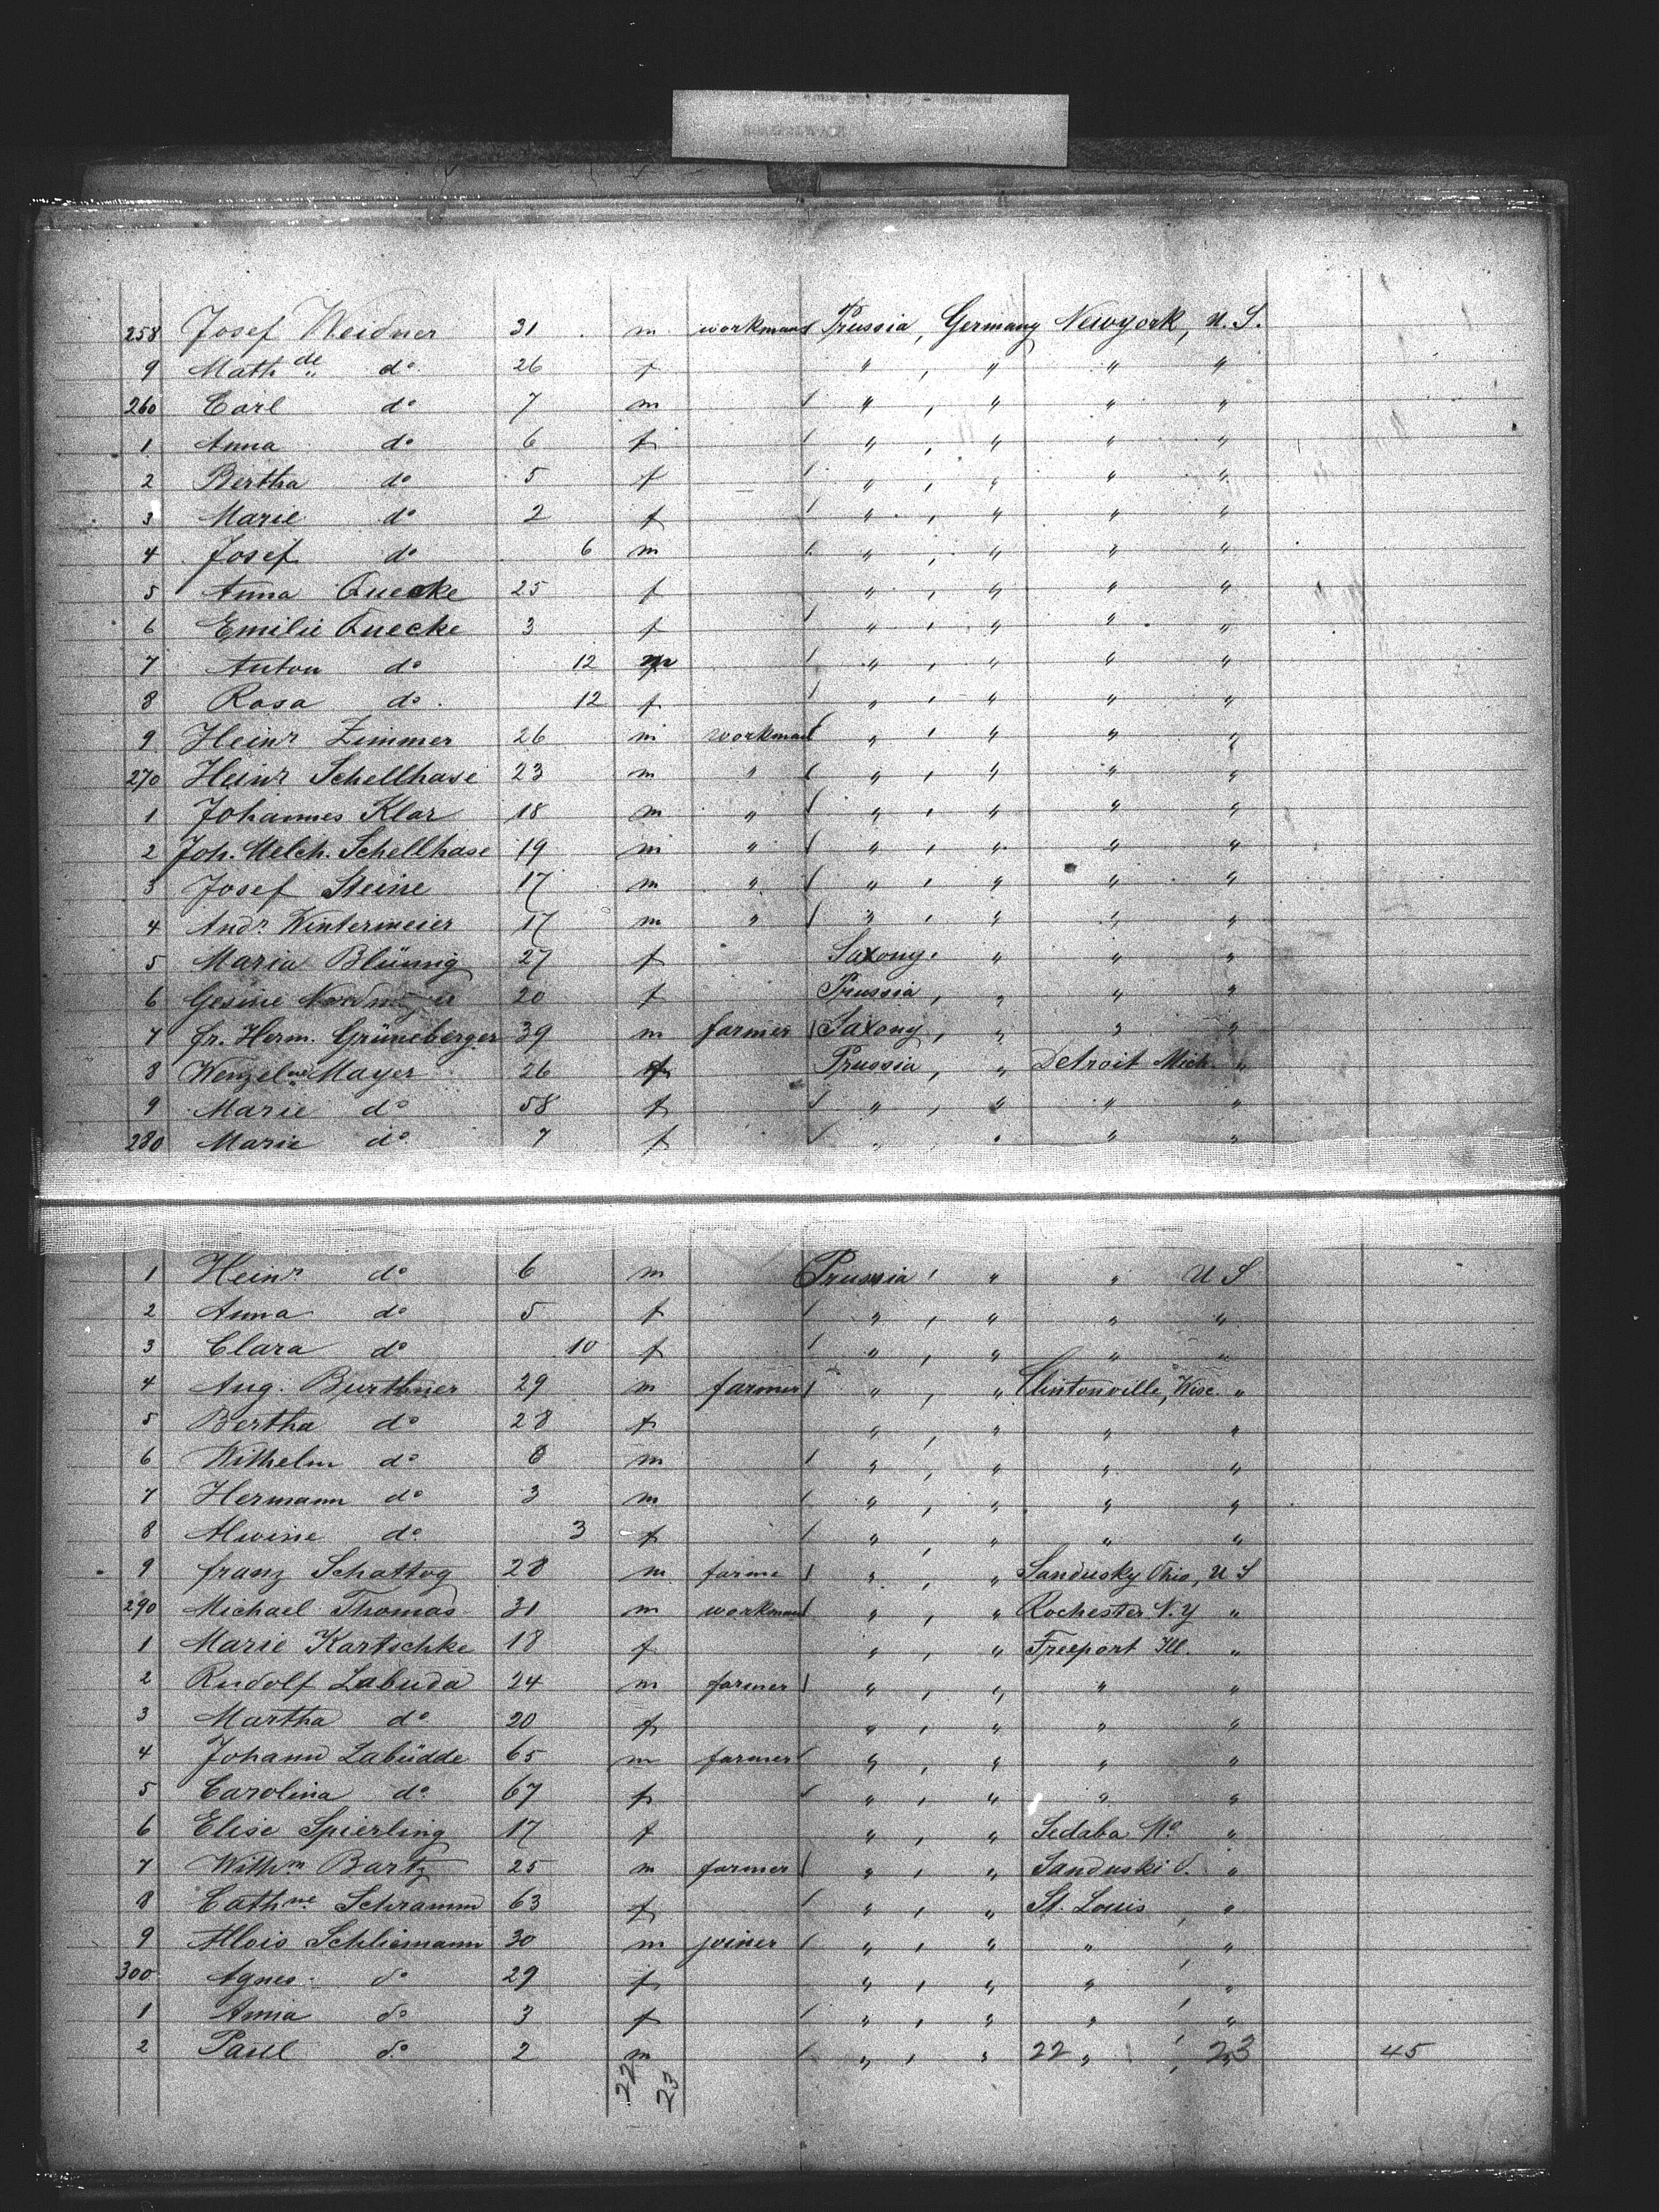 258 Josef Weidner 31 m workman Prussia, Germany Newyork, U.S.
9 Math de do 26 f " , " " "
260 Carl do 7 m " , " " "
1 Anna do 6 f " , " " "
2 Bertha do 5 f " , " " "
3 Marie do 2 f " , " " "
4 Josef do 6 m " , " " "
5 Anna Quecke 25 f " , " " "
6 Emilie Quecke 3 f " , " " "
7 Anton do 12 m " , " " "
8 Rosa do. 12 f " , " " "
9 Heinr Zimmer 26 m workman " , " " "
270 Heinr Schellhase 23 m " " , " " "
1 Johannes Klar 18 m " " , " " "
2 Joh. Melch. Schellhase 19 m " " , " " "
3 Josef Steine 17 m " " , " " "
4 Andr Wintermeier 17 m " " , " " "
5 Maria Blünnig 27 f Saxony. " " "
6 Gesine 20 f Prussia, " " "
7 Fr. Herm. Grüneberger 39 m farmer Saxony, " " "
8 Wenzel Mayer 26 f Prussia, " Detroit Mich. "
9 Marie do 58 f " , " " "
280 Marie do 7 f " " " "
1 Heinr do 6 m Prussia, " " U S
2 Anna do 5 f " , " " "
3 Clara do 10 f " , " " "
4 Aug. Burthner 29 m farmer " , " Clintonville, Wisc. "
5 Bertha do 28 f " , " " "
6 Wilhelm do m " , " " "
7 Hermann do 3 m " , " " "
8 Alwine do. 3 f " , " " "
9 Franz Schattog 28 m farme " , " Sandusky Ohio, U S
290 Michael Thomas 31 m workman " , " Rochester N.Y "
1 Marie Kartschke 18 f " , " Freeport Ill. "
2 Rudolf Labuda 24 m farmer " , " " "
3 Martha do 20 f " , " " "
4 Johann Labüdde 65 m farmer " , " " "
5 Carolina do. 67 f " , " " "
6 Elise Spierling 17 f " , " Sedaba Mo "
7 Wilhm Bartz 25 m farmer " , " Sanduski O. "
8 Cathne Schramm 63 f " , " St. Louis , "
9 Alois Schliemann 30 m joiner " , " " , "
300 Agnes do 29 f " , " " , "
1 Anna do 3 f " , " " , "
2 Paul do 2 m " , " 22 " , 23 45
22 23